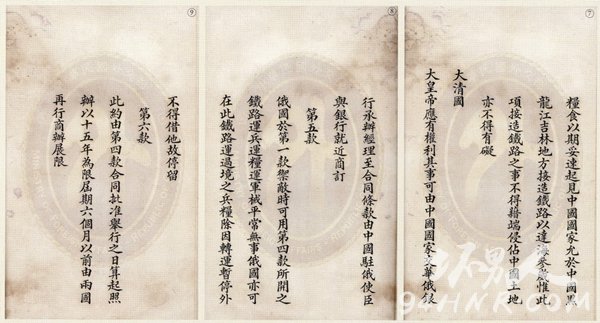 ⑦
糧食以期妥速起見中國國家允於中國黑
龍江吉林地方接造鐵路以達海參崴惟此
項接造鐵路之事不得藉端侵佔中國土地
亦不得有礙
大清國
大皇帝應有權利其事可由中國國家交華俄銀
⑧
行承辦經理至合同條款由中國駐俄使臣
與銀行就近商訂
第五款
俄國於第一款禦敵時可用第四款所開之
鐵路運兵運糧運軍械平常無事俄國亦可
在此鐵路運過境之兵糧除因轉運暫停外
⑨
不得借他故停留
第六款
此約由第四款合同批准舉行之日算起照
辦以十五年為限屆期六個月以前由兩國
再行商辦展限
坏男人
94HNR.COM